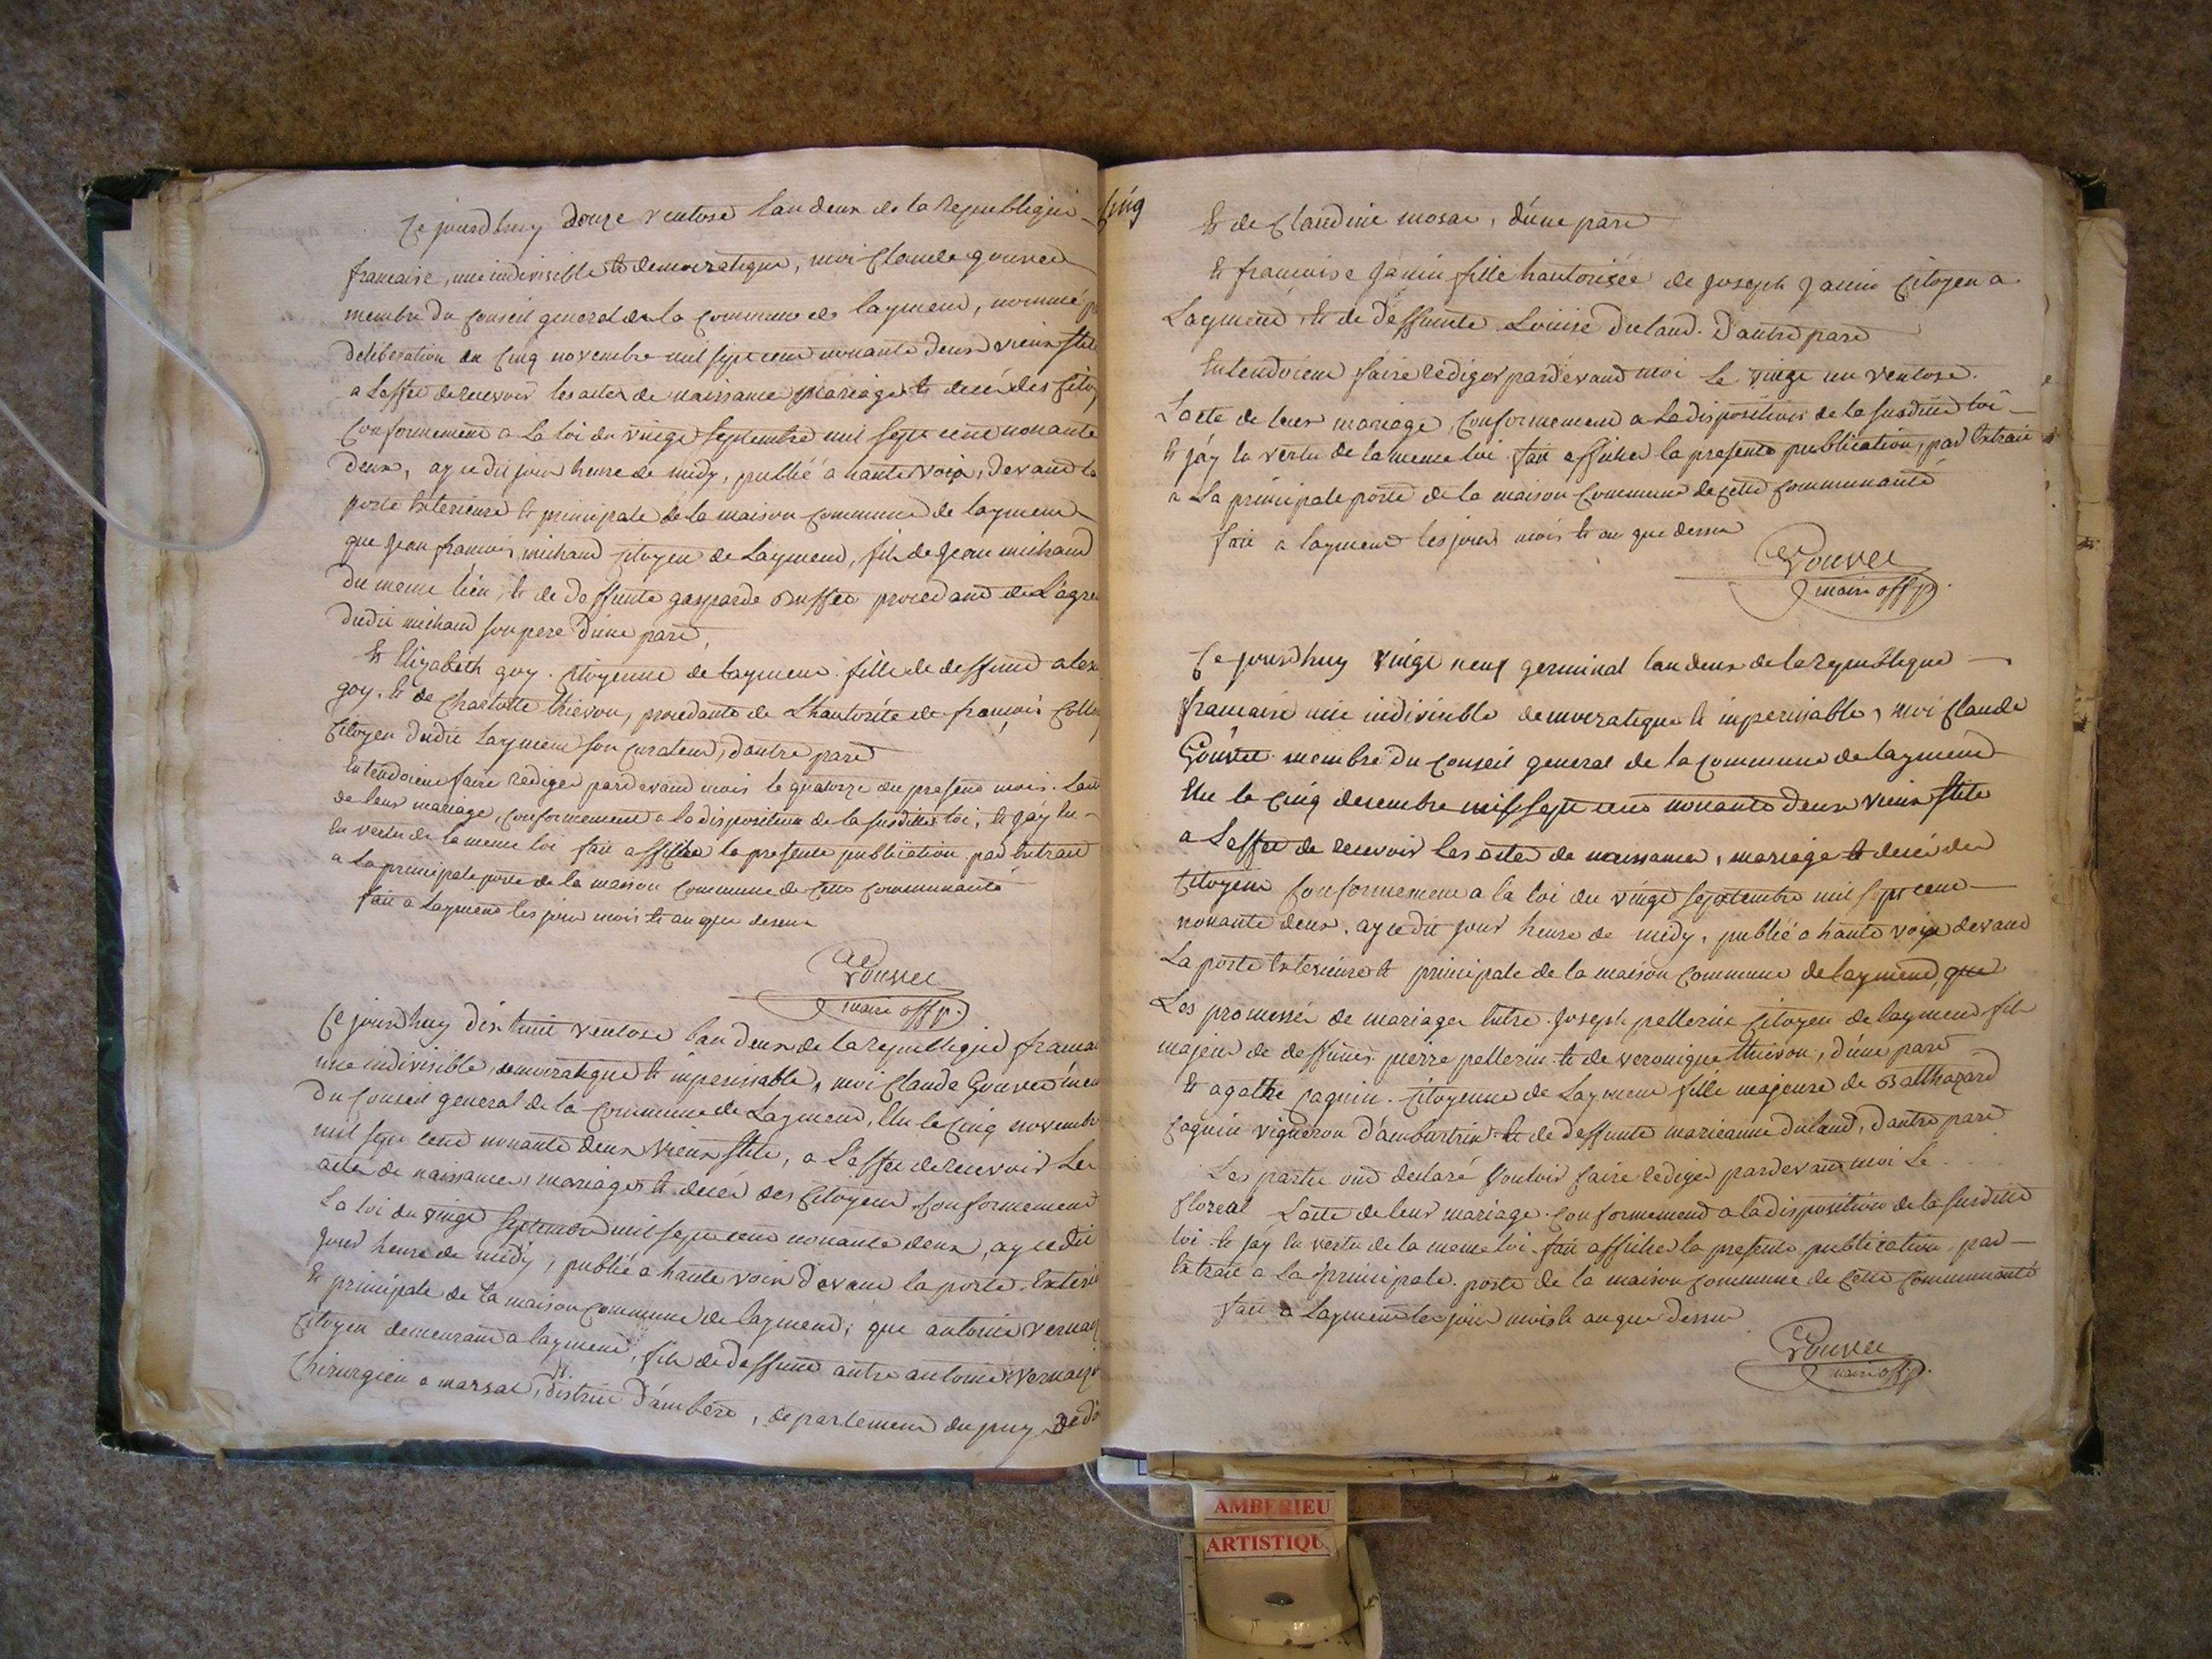 Ce jourdhuy douze ventose lan deux de la republique
francaise, une indivisible et democratique, moi Claude gouvee
membre du Conseil general de la Commune de laymend, nommé
deliberation du Cinq novembre mil sept cent nonante deux vieux stile
a Leffet de recevoir les actes de naissance mariage et decé des Citoy
Conformement a la loi du vingt septembre mil sept cent nonante
deux, ay cedit jour heure de midy, publié a haute voix, devand la
porte Exterieure et principale de la maison commune de laymend
que Jean francois michaud Citoyen de Laymend, fils de Jean michaud
du meme lieu, et de deffunte gasparde Buffet procedand de L'agre
dudit michaud son pere d'une part,
Et Elizabeth goy. Citoyenne de laymend. fille de deffund alex
goy. et de Charlotte thievon, procedante de Lhautorite de francois Collo
Citoyen dudit Laymend son Curateur, dautre part
Entendoient faire rediger pardevand mois le quatorze du present mois. Lact
de leur mariage, Conformement a la disposition de la susditte loi, et jáy Eu
En vertu de la meme loi fait afficher la presente publication par Extrait
a La principale porte de la maison Commune de Cette Communauté
fait a Laymend les jour mois et an que dessus
Gouvee
maire off p.
Ce jourdhuy dix huit ventose lan deux de la republique francai
une indivisible, democratique et imperissable, moi Claude Gouvee mem
du Conseil general de la Commune de Laymend, Elu le Cinq novembre
mil sept cent nonante deux vieux stile, a Leffet de recevoir Les
actes de naissances mariages et decé des Citoyens Conformement
La loi du vingt septembre mil sept cent nonante deux, ay cedit
jour heure de midy, publié a haute voix devant la porte Exterie
Et principale de la maison Commune de laymend; que antoine vernay
Citoyen demeurand a laymend, fils de deffund autre antoine vernay
Chirurgien a marsac, district d'ambert, departement du puy de dô
Cinq
Et de Claudine mosac, d'une part
Et francoise Janin fille hautorisée de Joseph Janin Citoyen a
Laymend et de deffunte Louise duland. Dautre part
Entendoient faire rediger pardevand moi Le vingt un ventose.
Lacte de leur mariage, Conformement a La disposition de la susditte loi
Et jáy En vertu de la meme loi fait afficher la presente publication, par Extrait
a La principale porte de la maison Commune de Cette Communauté
fait a laymend les jour mois et an que dessus
Gouvee
maire off p.
Ce jourdhuy vingt neuf germinal lan deux de la republique
francaise une indivisible democratique et imperissable, moi Claude
Gouvee membre du Conseil general de la Commune de laymend
Elu le Cinq decembre mil sept cent nonante deux vieux stile
a Leffet de recevoir les actes de naissances, mariage et decé des
Citoyens Conformement a la loi du vingt septembre mil sept cent
nonante deux. ay cedit jour heure de midy, publié a haute voix devand
La porte Exterieure et principale de la maison Commune de laymend, que
Les promesses de mariage Entre Joseph pellerin Citoyen de laymend fils
majeur de deffunts pierre pellerin et de veronique thievon, d'une part
Et agathe Caquin. Citoyenne de Laymend fille majeure de Balthazard
Caquin vigneron d'ambutrix et de deffunte marieanne duland, d'autre part
Les parties ond declaré vouloir faire rediger pardevand moi Le
floreal Lacte de leur mariage. Conformement a la disposition de la susditte
loi. Et jáy En vertu de la meme loi. fait afficher la presente publication par
Extrait a La principale porte de la maison Commune de Cette Communauté
fait a Laymend les jour mois et an que dessus
Gouvee
maire off p.
AMBERIEU
ARTISTIQU